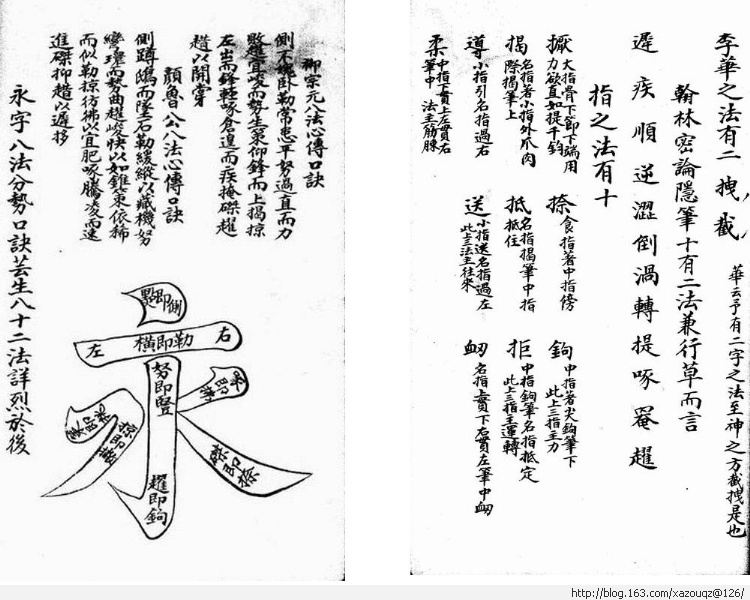 李華之法有二 拽截
華云予有二字之法至神之方截拽是也
翰林密論隱筆十有二法兼行草而言
遲疾順逆澀倒渦轉提啄罨趯
指之法有十
擫 大指骨下節下端用
力欲直如提千鈞
捺 食指著中指傍
鉤 中指著尖鉤筆下
此上三指主力
揭 名指著小指外爪肉
際揭筆上
抵 名指揭筆中指
抵住
拒 中指鉤筆名指抵定
此上三指主運轉
導 小指引名指過右
送 小指送名指過左
此上三法主往來
衄 名指上貫下右貫左筆中衄
柔 中指下貫上左貫右
筆中 法主筋腠
柳宗元八法心傳口訣
側不愧臥勒常患平努過直而力
敗趯宜峻而勢生策仰鋒而上揭掠
左出而鋒輕啄倉遑而疾掩磔趯
以開穿
顏魯公八法心傳口訣
側蹲鴟而墜石勒緩縱以藏機努
彎環而勢曲趯峻快以如錐策依稀
而似勒掠彷彿以宜肥啄騰凌而速
進磔抑以遲移
永字八法分勢口訣芸生八十二法詳烈於後
點即側
左 橫即勒 右
努即豎
趯即鉤
磔即捺
http://blog.163.com/xazouqz@126/